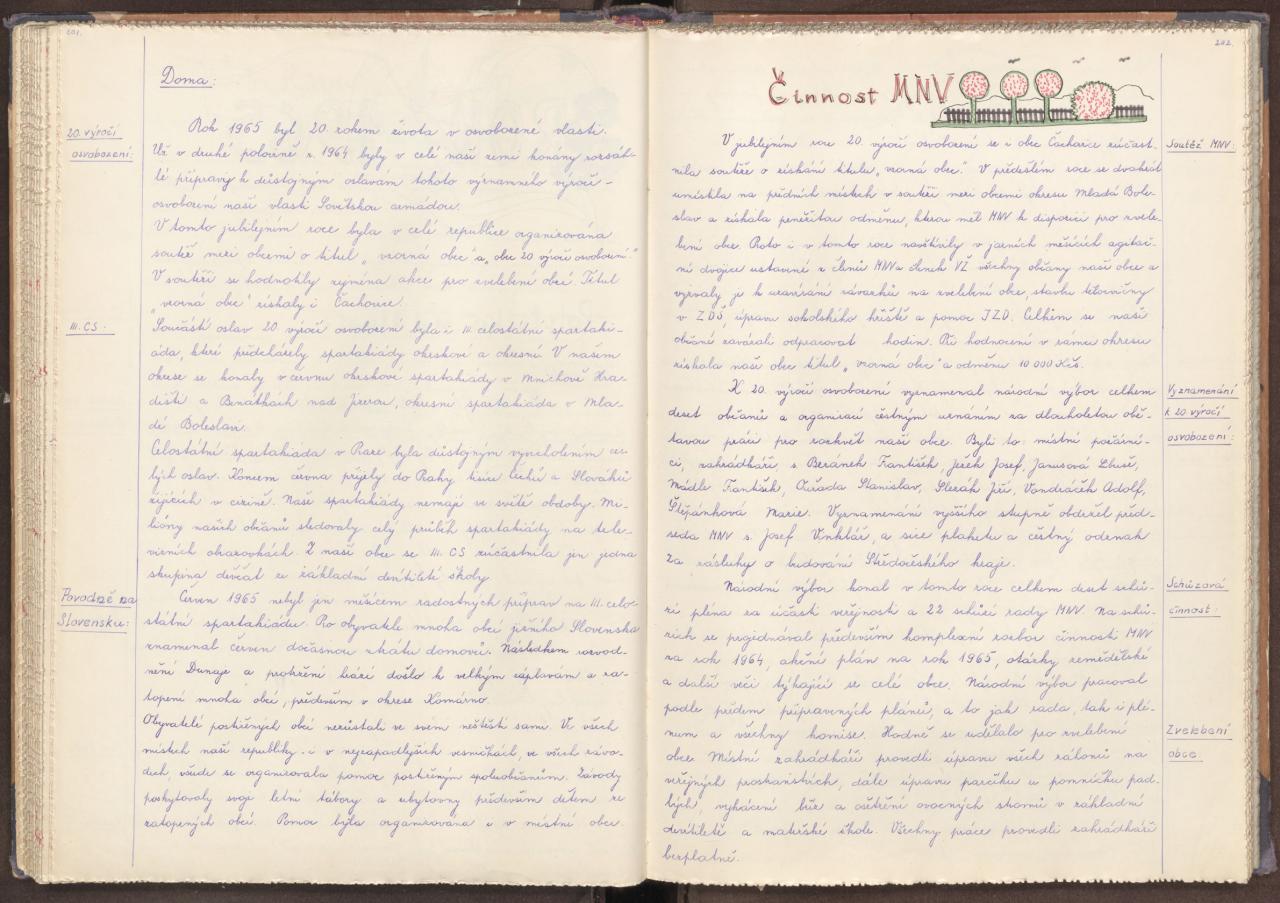 201.
Doma:
20. výročí
osvobození:
Rok 1965 byl 20. rokem života v osvobozené vlasti.
Už v druhé polovině r. 1964 byly v celé naší zemi konány rozsáh-
lé přípravy k důstojným oslavám tohoto významného výročí -
osvobození naší vlasti Sovětskou armádou.
V tomto jubilejním roce byla v celé republice organizována
soutěž mezi obcemi o titul „ vzorná obec" a „obec 20 výročí osvobození."
V soutěži se hodnotily zejména akce pro zvelebení obcí. Titul
„vzorná obec" získaly i Čachovice.
III. CS:
Součástí oslav 20 výročí osvobození byla i III. celostátní spartaki-
áda, které předcházely spartakiády okrskové a okresní. V našem
okrese se konaly v červnu okrskové spartakiády v Mnichově Hra-
dišti a Benátkách nad Jizerou, okresní spartakiáda v Mla-
dé Boleslavi.
Celostátní spartakiáda v Praze byla důstojným vyvrcholením ce-
lých oslav. Koncem června přijely do Prahy tisíce Čechů a Slováků
žijících v cizině. Naše spartakiády nemají ve světě obdoby. Mi-
lióny našich občanů sledovaly celý průběh spartakiády na tele-
vizních obrazovkách. Z naší obce se III. CS zúčastnila jen jedna
skupina děvčat ze základní devítileté školy.
Povodně na
Slovensku:
Červen 1965 nebyl jen měsícem radostných příprav na III. celo-
státní spartakiádu. Pro obyvatele mnoha obcí jižního Slovenska
znamenal červen dočasnou ztrátu domovů. Následkem rozvod-
nění Dunaje a protržení hrází došlo k velkým záplavám a za-
topení mnoha obcí, především v okrese Komárno.
Obyvatelé postižených obcí nezůstali ve svém neštěstí sami. Ve všech
místech naší republiky - i v nejzapadlejších vesničkách, ve všech závo-
dech, všude se organizovala pomoc postiženým spoluobčanům. Závody
poskytovaly svoje letní tábory a ubytovny především dětem ze
zatopených obcí. Pomoc byla organizována i v místní obci.
202.
Činnost MNV
Soutěž MNV:
V jubilejním roce 20. výročí osvobození se i obec Čachovice zúčast-
nila soutěže o získání titulu „vzorná obec". V předešlém roce se dvakrát
umístila na předních místech v soutěži mezi obcemi okresu Mladá Bole-
slav a získala peněžitou odměnu, kterou měl MNV k dispozici pro zvele-
bení obce. Proto i v tomto roce navštívily v jarních měsících agitač-
ní dvojice ustavené z členů MNV a členek VŽ všechny občany naší obce a
vyzvaly je k uzavírání závazků na zvelebení obce, stavbu tělocvičny
v ZDŠ, úpravu sokolského hřiště a pomoc JZD. Celkem se naši
občané zavázali odpracovat hodin. Při hodnocení v rámci okresu
získala naše obec titul „ vzorná obec" a odměnu 10 000 Kčs.
Vyznamenání
k 20 výročí
osvobození:
K 20. výročí osvobození vyznamenal národní výbor celkem
deset občanů a organizací čestným uznáním za dlouholetou obě-
tavou práci pro rozkvět naší obce. Byli to: místní požární-
ci, zahrádkáři, s. Beránek František, Ježek Josef, Janusová Libuše,
Mádle František, Slezák Jiří, Vondráček Adolf,
Štěpánková Marie. Vyznamenání vyššího stupně obdržel před-
seda MNV s. Josef Vinklář, a sice plaketu a čestný odznak
Za zásluhy o budování Středočeského kraje.
Schůzová
činnost:
Národní výbor konal v tomto roce celkem deset schů-
zí pléna za účasti veřejnosti a 22 schůzí rady MNV. Na schů-
zích se projednával především komplexní rozbor činnosti MNV
za rok 1964, akční plán na rok 1965, otázky zemědělské
a další věci týkající se celé obce. Národní výbor pracoval
podle předem připravených plánů, a to jak rada, tak i plé-
num a všechny komise. Hodně se udělalo pro zvelebení
Zvelebení
obce.
obce. Místní zahrádkáři provedli úpravu všech záhonů na
veřejných prostranstvích, dále úpravu parčíku u pomníčku pad-
lých, vykácení bříz a ošetření ovocných stromů v základní
devítileté a mateřské škole. Všechny práce provedli zahrádkáři
bezplatně.